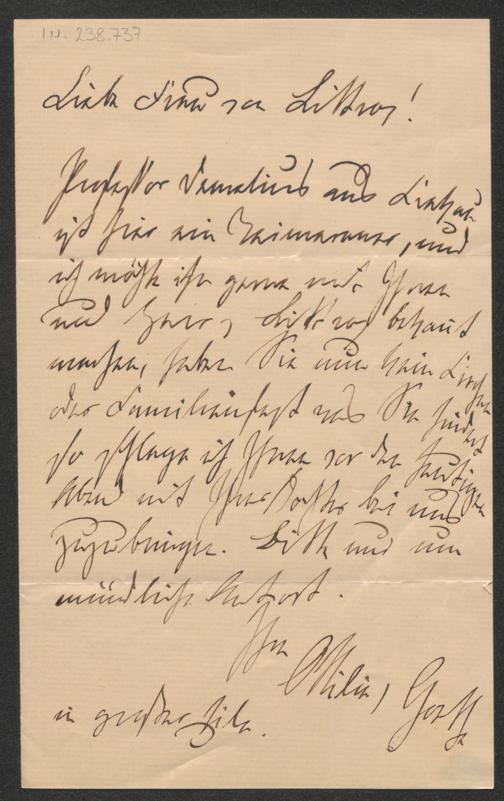 IN. 238.737
Liebe Frau von Littrow!
Professor Demelius aus
ist hier ein Weimaraner, und
ich möchte ihn gerne mit Ihnen
und Herrn v Littrow bekannt
machen, haben Sie nun kein
oder Familienfest was Sie hindert
so schlage ich Ihnen vor den heutigen
Abend mit Ihrer Tochter bei uns
zuzubringen. Bitte nur um
mündliche Antwort.
Ihre
Ottilie v Goethe
in großer Eile.